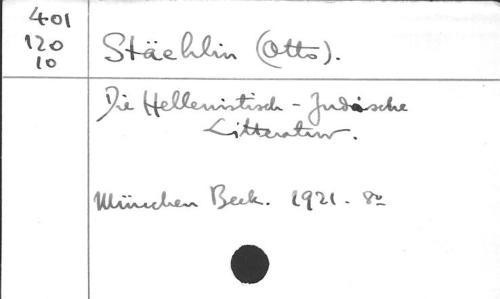 401
120
10
Stäehlin (Otto).
Die Hellenistisch - Judische
Litteratur.
München Beck. 1921. 8º